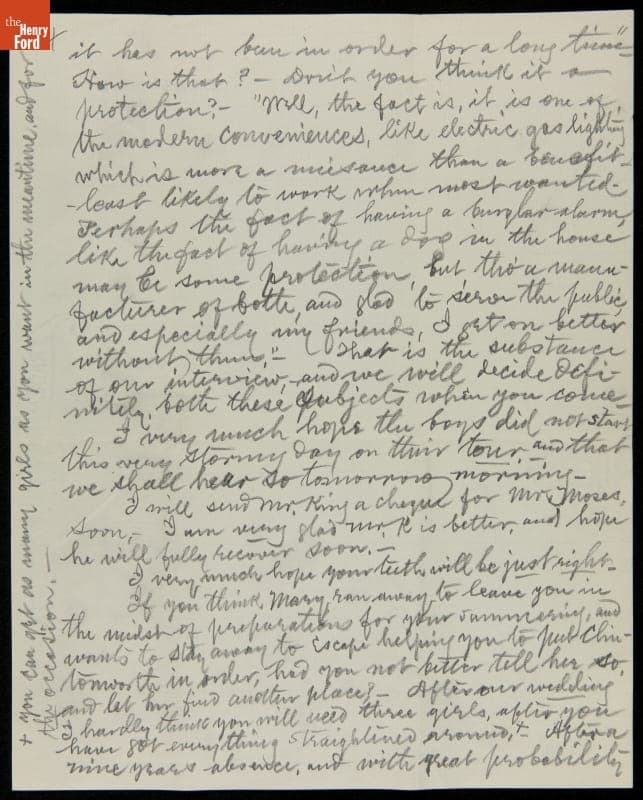 the
Henry
Ford
it has not been in order for a long time"
How is that? – Don't you think it a
protection? – "Well, the fact is, it is one of
the modern conveniences, like electric gas lighting
which is more a nuisance than a benefit –
– least likely to work when most wanted –
Perhaps the fact of having a burglar alarm,
like the fact of having a dog in the house
may be some protection, but tho' a manu-
facturer of both, and glad to serve the public,
and especially my friends, I get on better
without them." – That is the substance
of our interview, and we will decide defi-
nitely, both these subjects when you come –
I very much hope the boys did not start
this very stormy day on their tour and that
we shall hear so tomorrow morning –
I will send Mr King a cheque for Mr Moses,
soon, – I am very glad Mr. K is better, and hope
he will fully recover soon. –
I very much hope your teeth will be just right –
If you think Mary ran away to leave you in
the midst of preparations for your summering, and
wants to stay away to escape helping you to put Chin-
tonworth in order, had you not better tell her so,
and let her find another place? – After our wedding
I hardly think you will need three girls, after you
have got everything straightened around, + After a
nine years absence, and with great probability
+ you can get as many girls as you want in the meantime, and for
the occasion. –